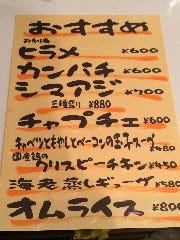 おすすめ
おもり
ヒラメ ¥600
カンパチ ¥600
シマアジ ¥700
三種盛り ¥880
チャプチェ ¥600
キャベツともやしとベーコンの玉子スープ ¥480
国産鶏のクリスピーチキン ¥450
海老蒸しギョーザ ¥580
オムライス ¥800